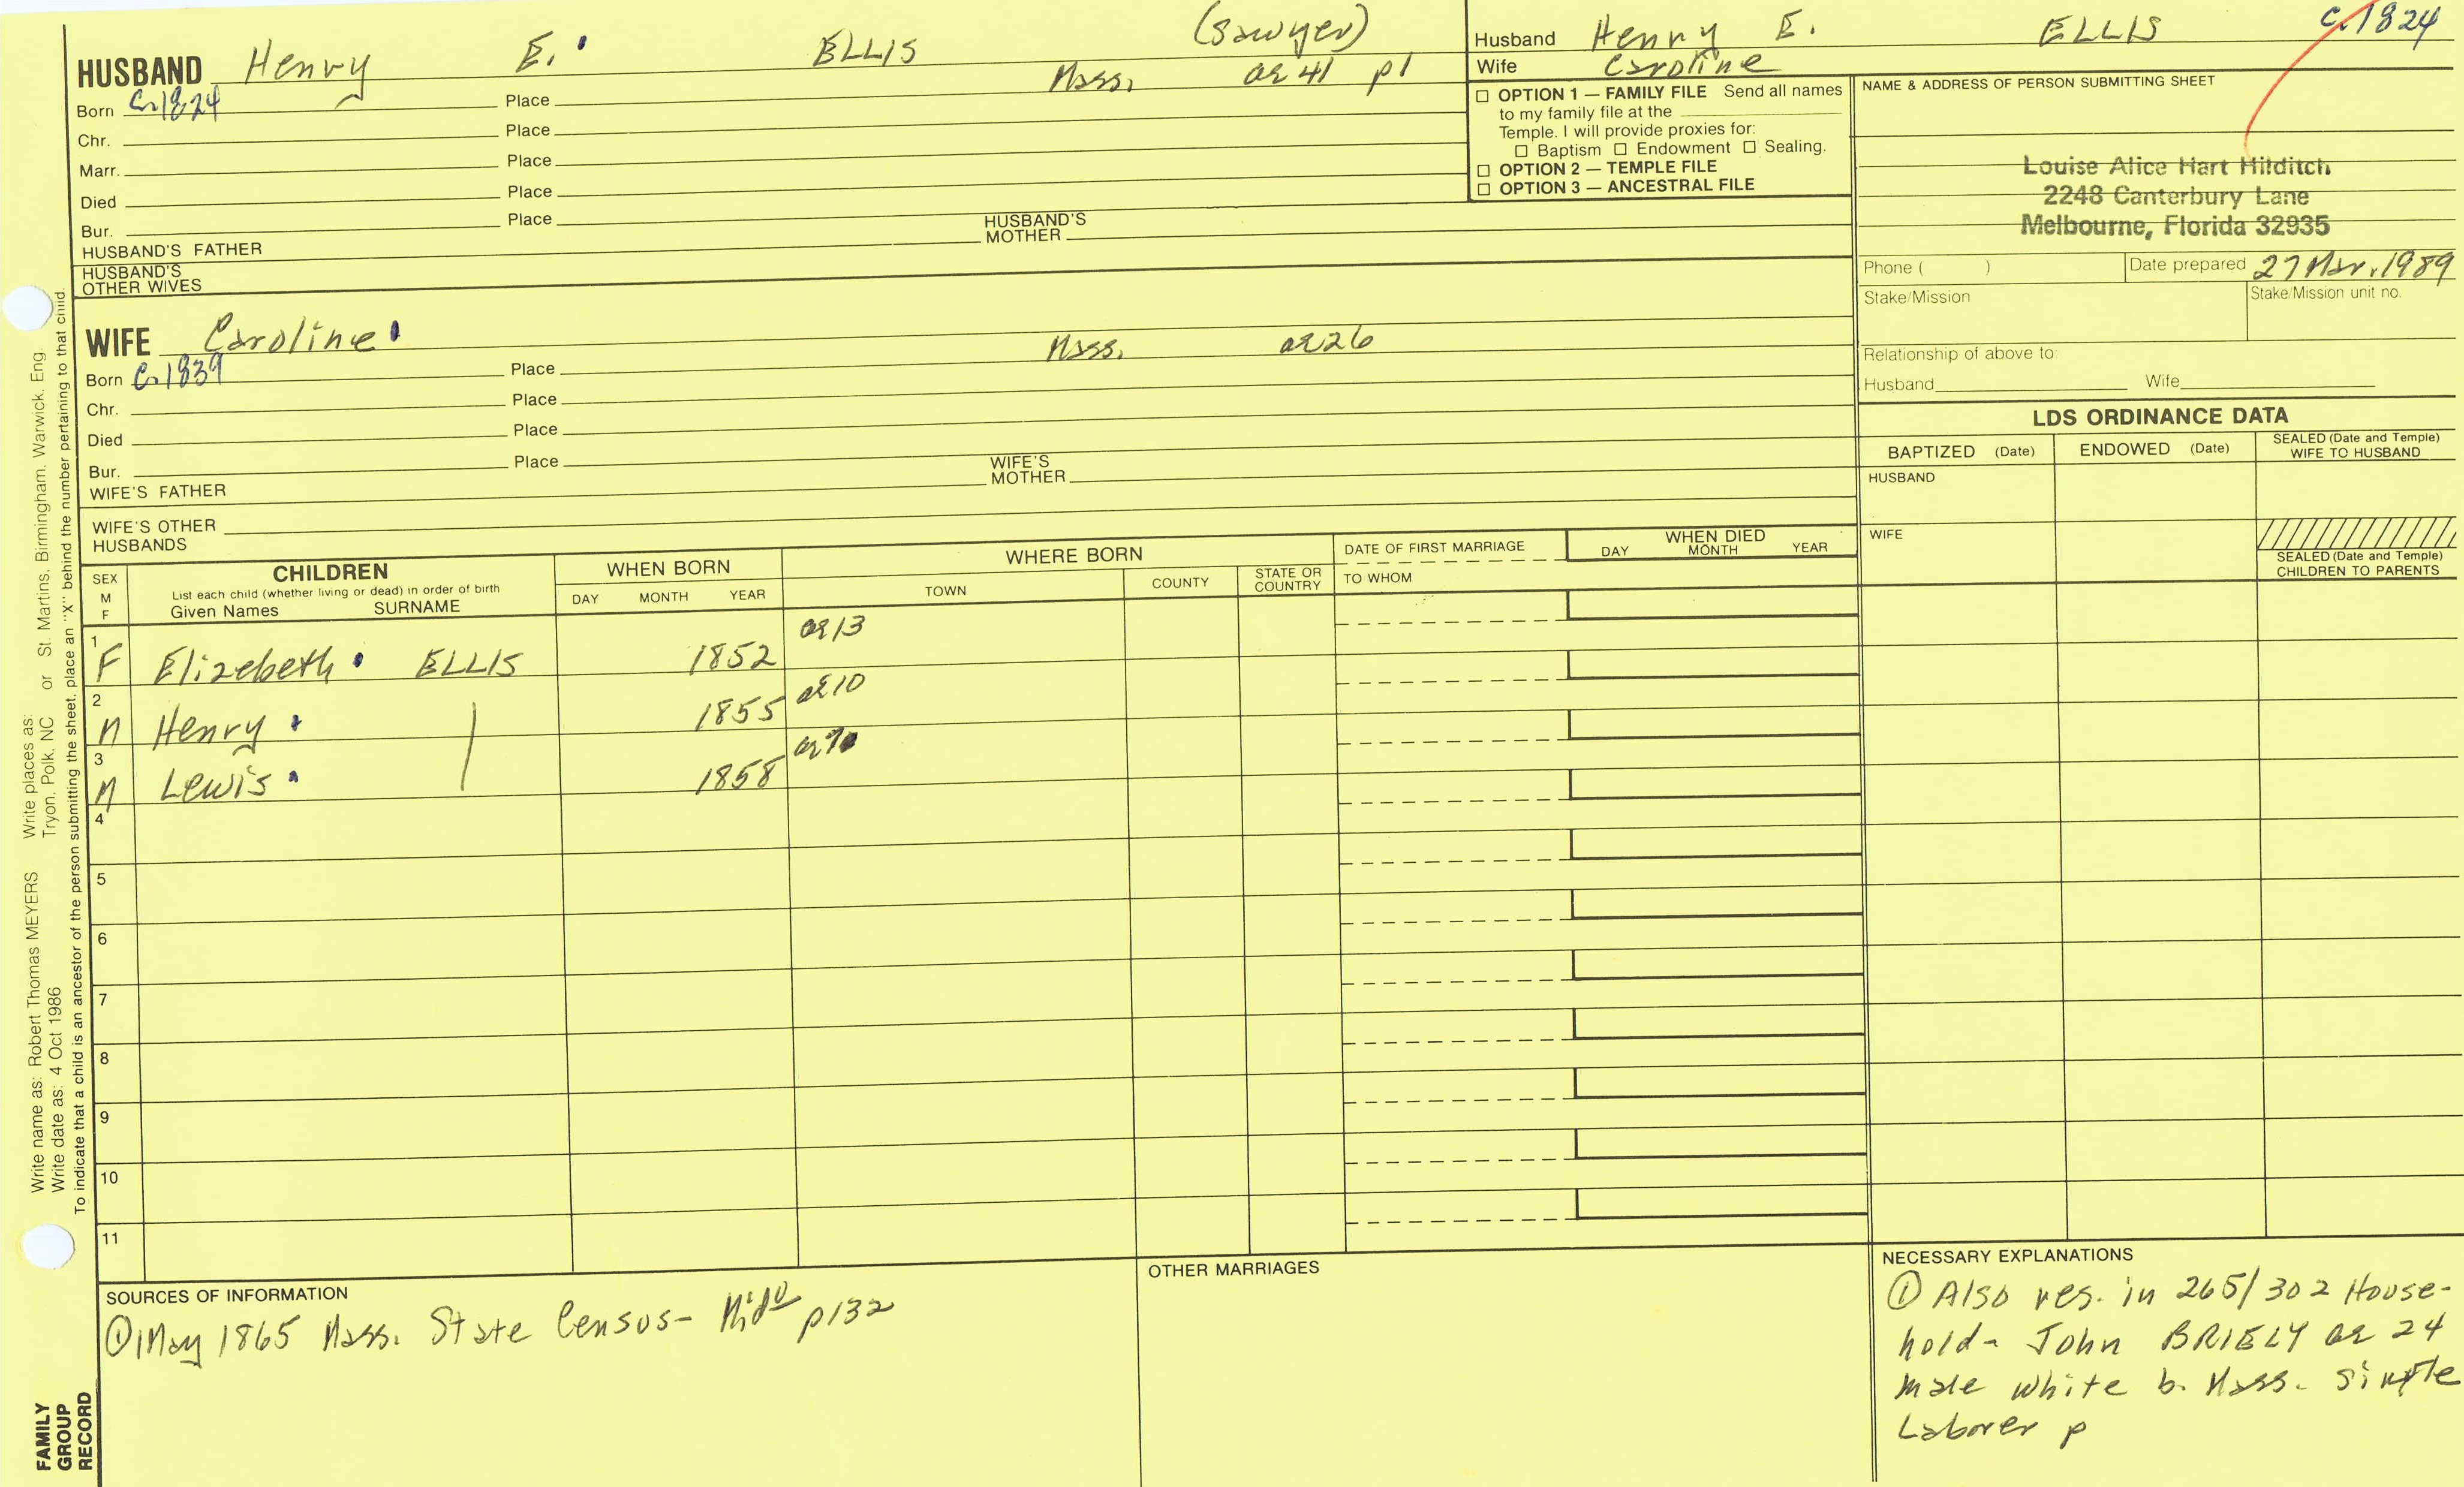 HUSBAND Henry E. ELLIS (Sawyer)
Mass. ae 41 p1
Born c.1824 Place
Chr. Place
Marr. Place
Died Place
Bur. Place
HUSBAND'S FATHER HUSBAND'S MOTHER
HUSBAND'S OTHER WIVES
Husband Henry E. ELLIS c.1824
Wife Caroline
☐ OPTION 1 — FAMILY FILE Send all names
to my family file at the
Temple. I will provide proxies for:
☐ Baptism ☐ Endowment ☐ Sealing.
☐ OPTION 2 — TEMPLE FILE
☐ OPTION 3 — ANCESTRAL FILE
NAME & ADDRESS OF PERSON SUBMITTING SHEET
Louise Alice Hart Hilditch
2248 Canterbury Lane
Melbourne, Florida 32935
Phone ( ) Date prepared 27 Mar. 1989
Stake/Mission Stake/Mission unit no.
Relationship of above to:
Husband Wife
WIFE Caroline Mass. ae 26
Born c.1839 Place
Chr. Place
Died Place
Bur. Place
WIFE'S FATHER WIFE'S MOTHER
WIFE'S OTHER HUSBANDS
LDS ORDINANCE DATA
BAPTIZED (Date) ENDOWED (Date) SEALED (Date and Temple) WIFE TO HUSBAND
HUSBAND
WIFE
SEALED (Date and Temple) CHILDREN TO PARENTS
SEX M F
CHILDREN
List each child (whether living or dead) in order of birth
Given Names SURNAME
WHEN BORN
DAY MONTH YEAR
WHERE BORN
TOWN COUNTY STATE OR COUNTRY
DATE OF FIRST MARRIAGE
TO WHOM
WHEN DIED
DAY MONTH YEAR
1 F Elizebeth ELLIS 1852 ae 13
2 M Henry | 1855 ae 10
3 M Lewis | 1858 ae 7
4
5
6
7
8
9
10
11
SOURCES OF INFORMATION
① 1 May 1865 Mass. State Census- p132
OTHER MARRIAGES
NECESSARY EXPLANATIONS
① Also res. in 265/302 House-
hold- John BRIELY ae 24
male white b. Mass. single
Laborer p
Write name as: Robert Thomas MEYERS Write places as: or St. Martins, Birmingham, Warwick, Eng.
Write date as: 4 Oct 1986 Tryon, Polk, NC
To indicate that a child is an ancestor of the person submitting the sheet, place an "X" behind the number pertaining to that child.
FAMILY
GROUP
RECORD